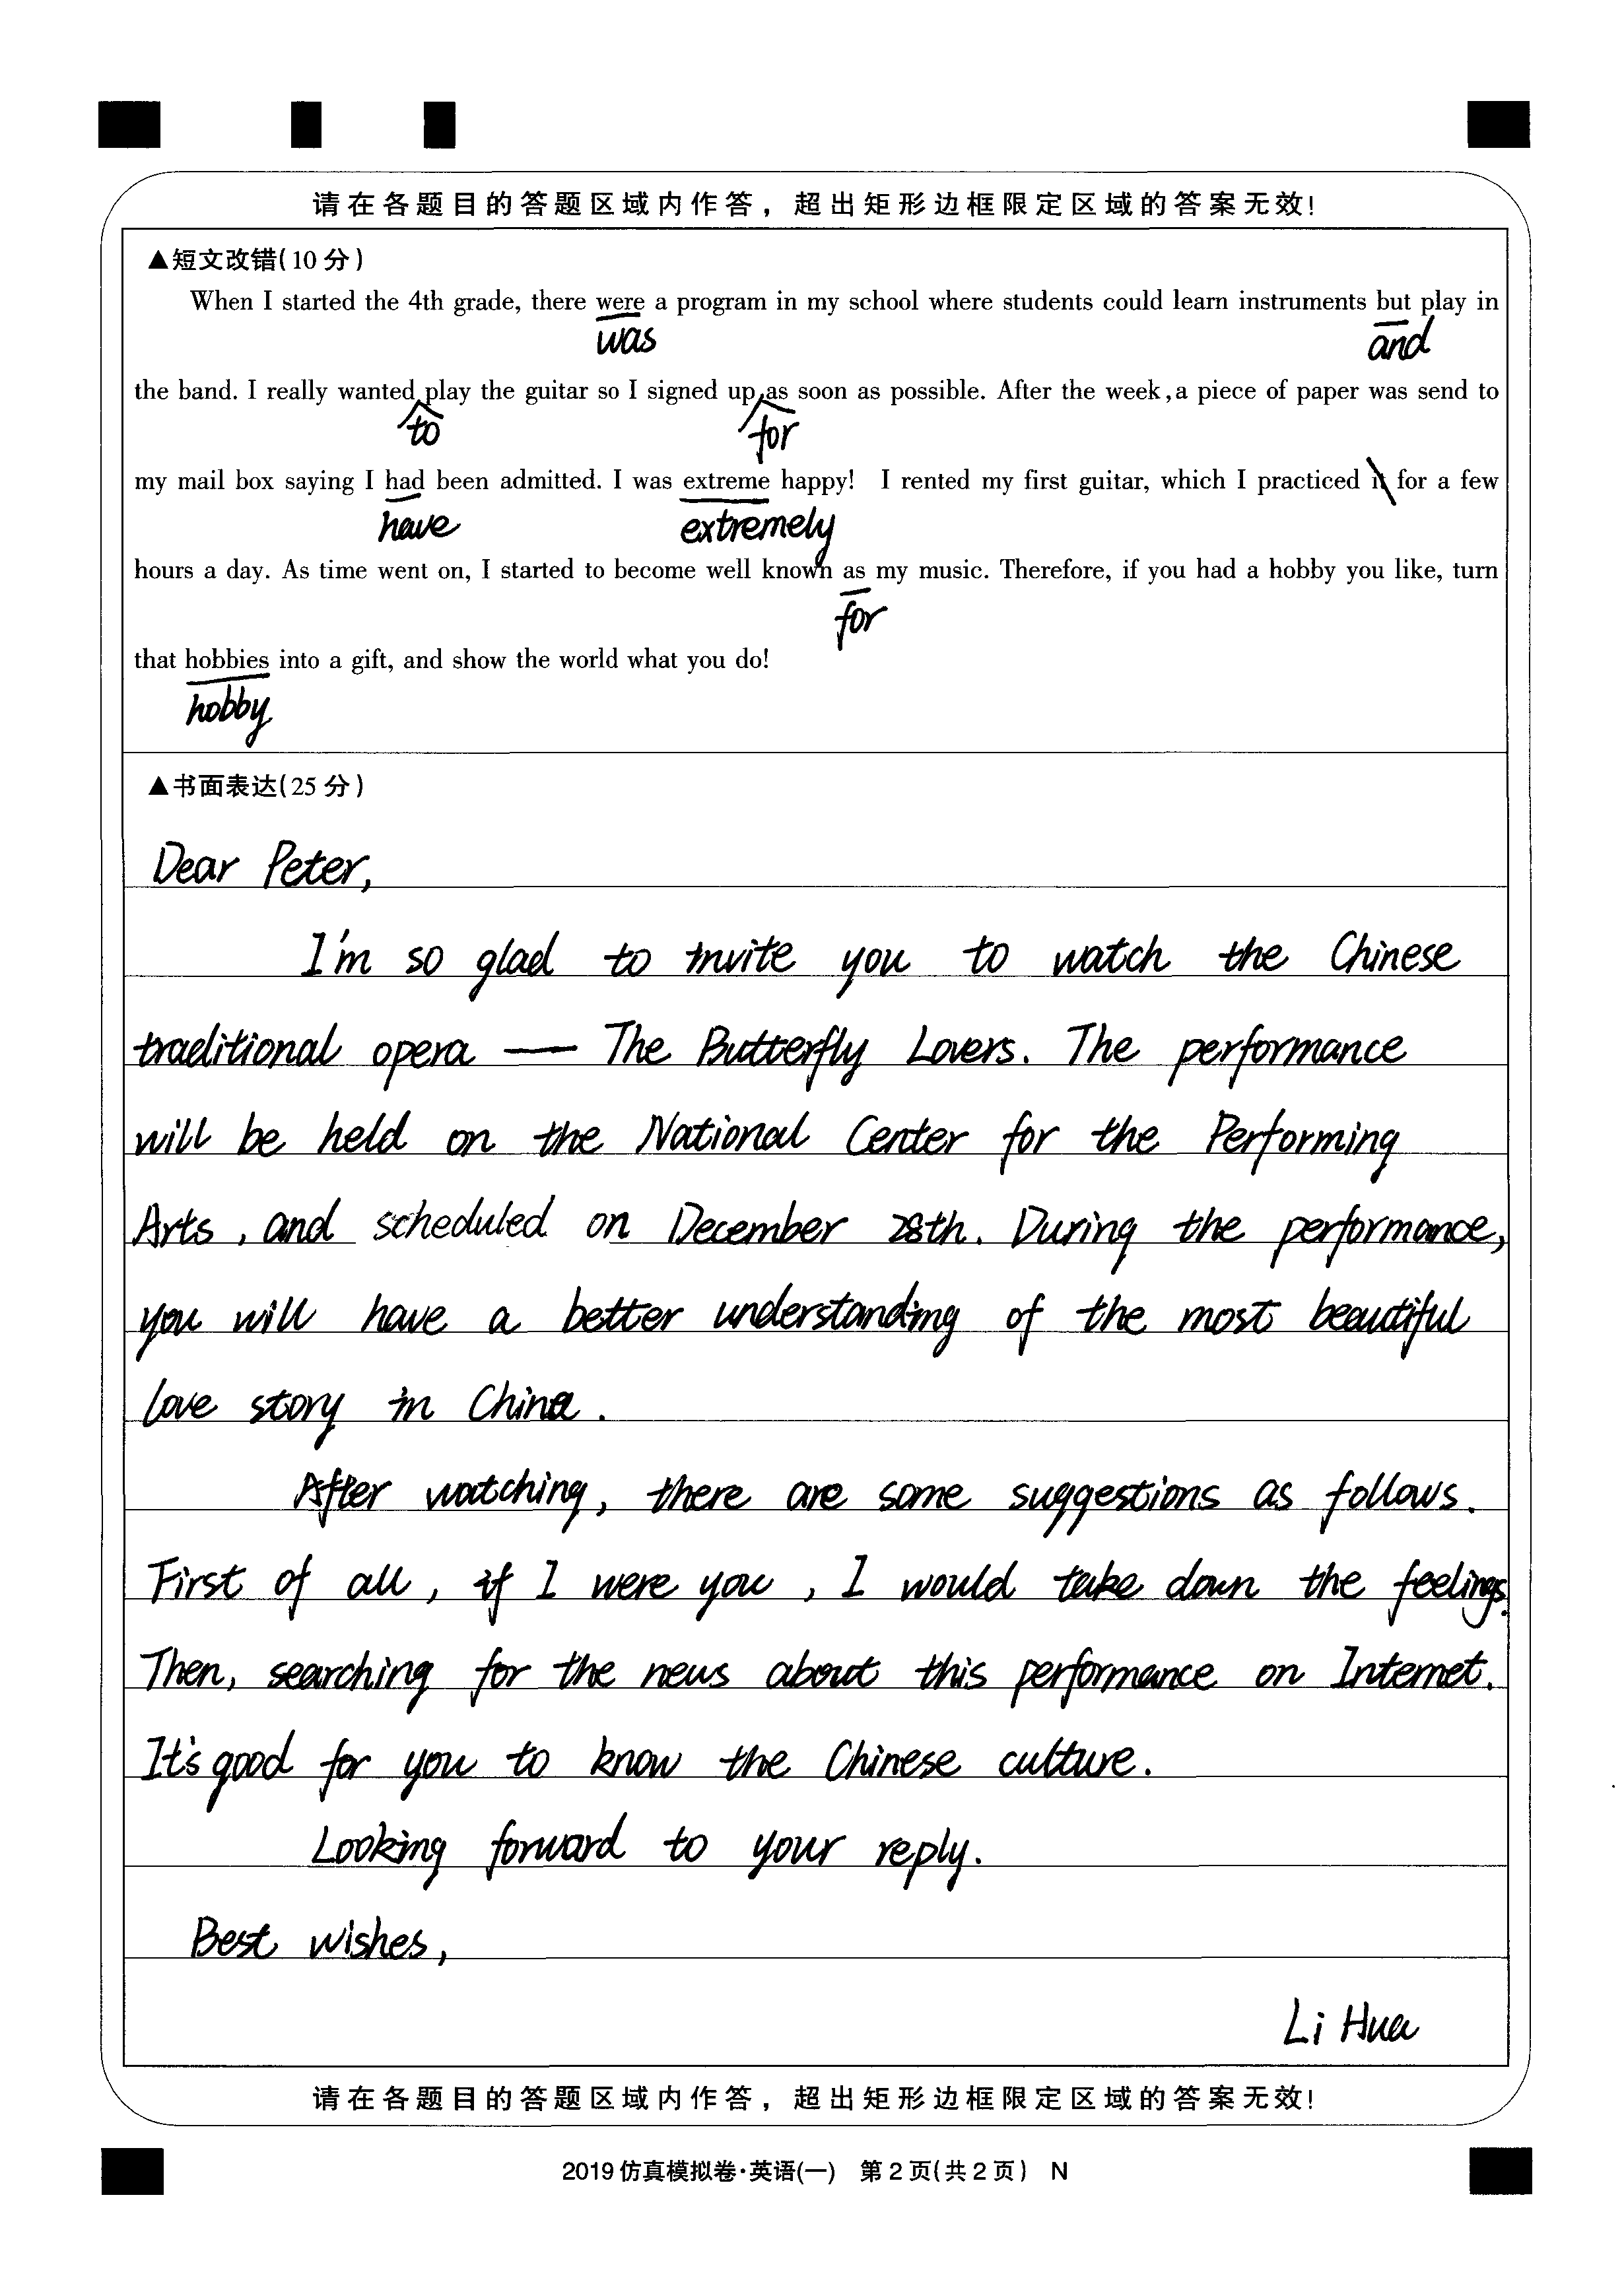 请在各题目的答题区域内作答，超出矩形边框限定区域的答案无效！
▲短文改错(10分)
When I started the 4th grade, there were a program in my school where students could learn instruments but play in
was and
the band. I really wanted play the guitar so I signed up as soon as possible. After the week, a piece of paper was send to
to for
my mail box saying I had been admitted. I was extreme happy! I rented my first guitar, which I practiced it for a few
have extremely
hours a day. As time went on, I started to become well known as my music. Therefore, if you had a hobby you like, turn
for
that hobbies into a gift, and show the world what you do!
hobby
▲书面表达(25分)
Dear Peter,
I'm so glad to invite you to watch the Chinese
traditional opera — The Butterfly Lovers. The performance
will be held on the National Center for the Performing
Arts, and scheduled on December 28th. During the performance,
you will have a better understanding of the most beautiful
love story in China.
After watching, there are some suggestions as follows.
First of all, if I were you, I would take down the feelings.
Then, searching for the news about this performance on Internet.
It's good for you to know the Chinese culture.
Looking forward to your reply.
Best wishes,
Li Hua
请在各题目的答题区域内作答，超出矩形边框限定区域的答案无效！
2019仿真模拟卷·英语(一) 第2页(共2页) N